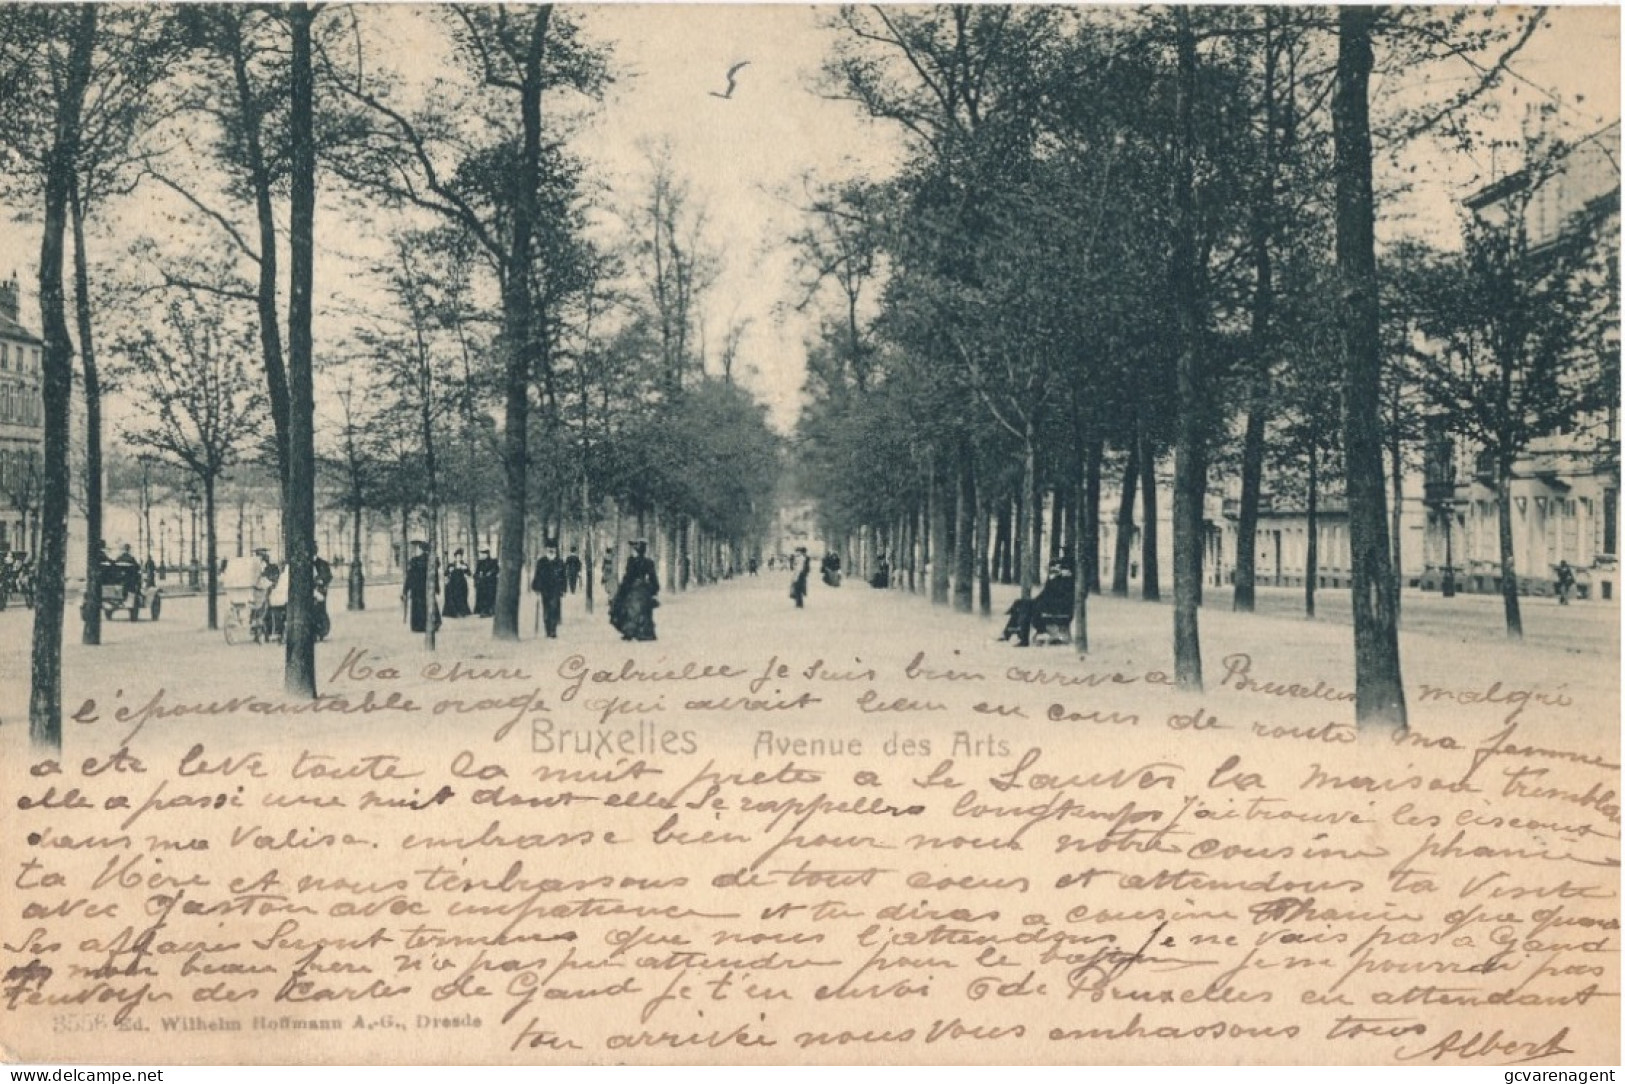 Ma chere Gabriellee je suis bien arrivé a Bruxelles malgré
l'épouvantable orage qui avait lieu en cour de route ma femme
a ete levé toute la nuit prete a se sauver la maison trembla
elle a passé une nuit dont elle se rappellera longtemps j'ai trouvé les ciseaux
Bruxelles Avenue des Arts
dans ma valise. embrasse bien pour nous notre cousine phanie
ta Mère et nous t'enbrassons de tout coeur et attendons ta visite
avec Gaston avec impatience et tu diras a cousine Phanie que quand
ses affaires seront termines que nous l'attendons je ne vais pas a Gand
mon beau frere n'a pas pu attendre pour le je ne pourrai pas
t'envoyer des Cartes de Gand je t'en envoi 6 de Bruxelles en attendant
ton arrivée nous vous embrassons tous
Albert
3556 Ed. Wilhelm Hoffmann A.-G., Dresde
https://www.delcampe.net
gcvarenagent